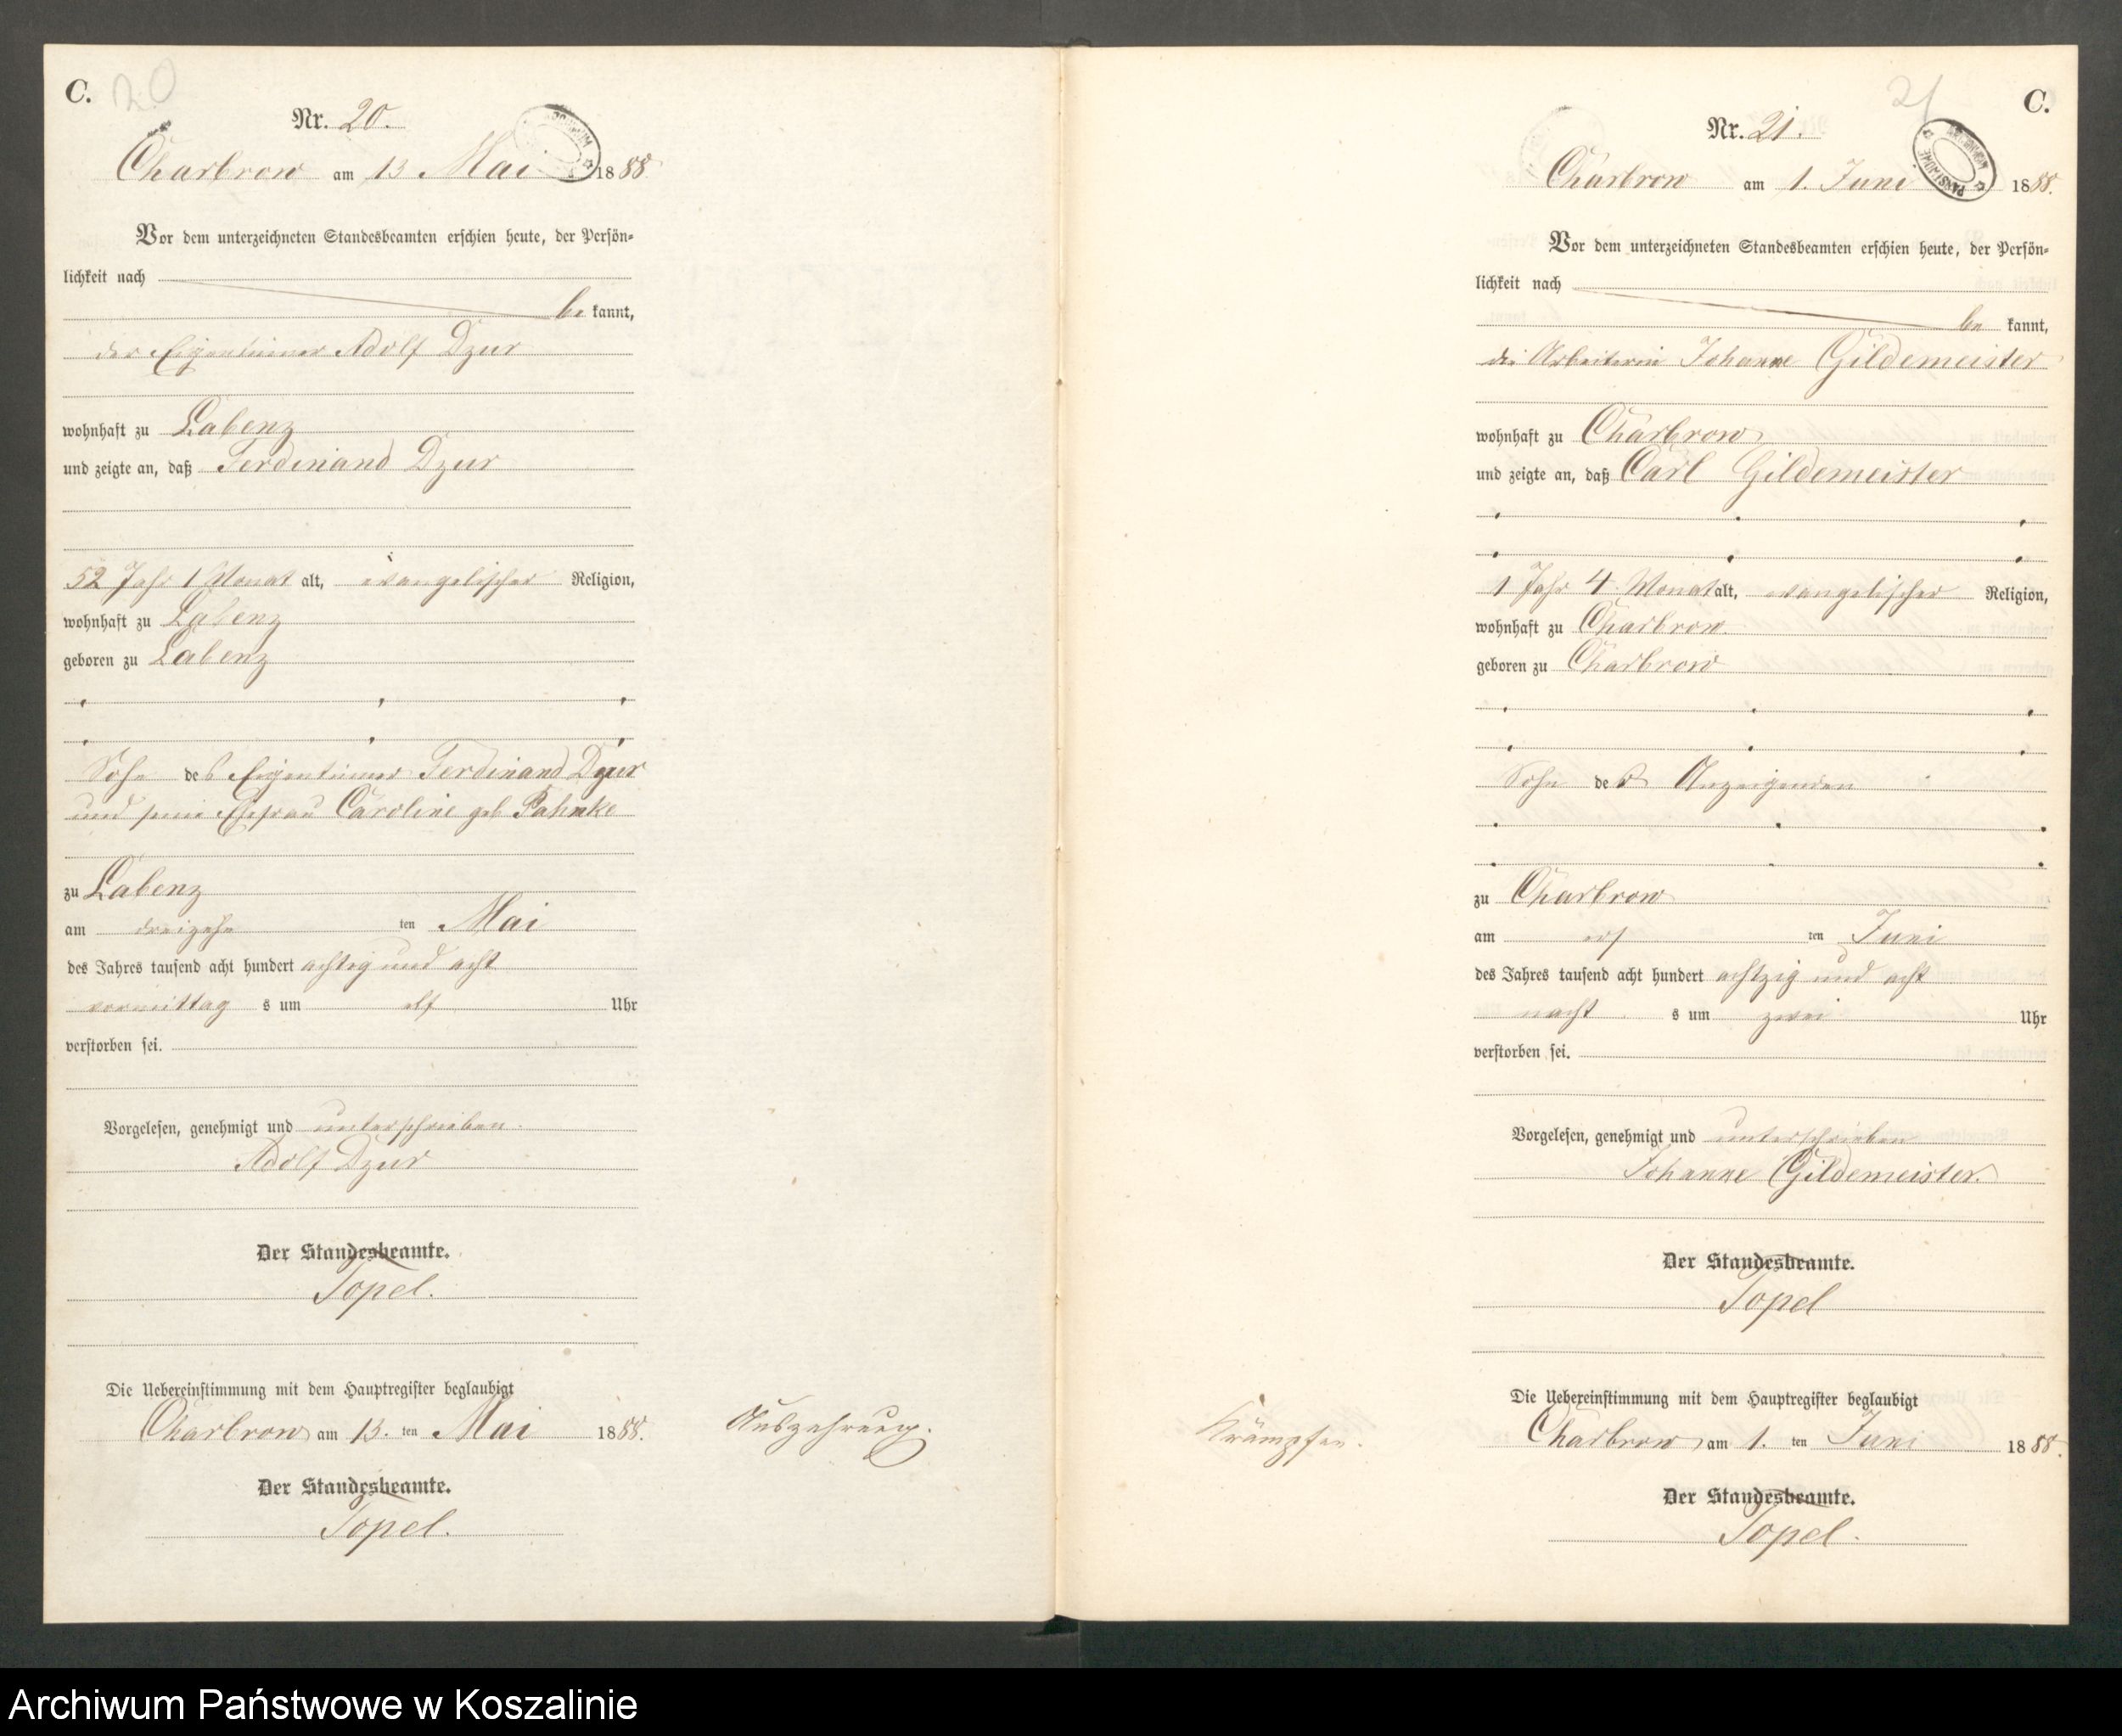 C.
20
Nr. 20.
Charbrow am 13 Mai 1888
Vor dem unterzeichneten Standesbeamten erschien heute, der Persön-
lichkeit nach
be kannt,
der Eigentümer Adolf Dzur
wohnhaft zu Labenz
und zeigte an, daß Ferdinand Dzur
52 Jahr 1 Monat alt, evangelischer Religion,
wohnhaft zu Labenz
geboren zu Labenz
Sohn des Eigentümer Ferdinand Dzur
und seine Ehefrau Caroline geb Pahnke
zu Labenz
am dreizehn ten Mai
des Jahres tausend acht hundert achtzig und acht
vormittag s um elf Uhr
verstorben sei.
Vorgelesen, genehmigt und unterschrieben.
Adolf Dzur
Der Standesbeamte.
Topel.
Die Uebereinstimmung mit dem Hauptregister beglaubigt
Charbrow am 13. ten Mai 1888.
Der Standesbeamte.
Topel.
Auszehrung.
21
C.
Nr. 21.
Charbrow am 1. Juni 1888.
Vor dem unterzeichneten Standesbeamten erschien heute, der Persön-
lichkeit nach
be kannt,
die Arbeiterin Johanne Gildemeister
wohnhaft zu Charbrow
und zeigte an, daß Carl Gildemeister
1 Jahr 4 Monat alt, evangelischer Religion,
wohnhaft zu Charbrow
geboren zu Charbrow
Sohn der Anzeigenden
zu Charbrow
am ers ten Juni
des Jahres tausend acht hundert achtzig und acht
nacht s um zwei Uhr
verstorben sei.
Vorgelesen, genehmigt und unterschrieben
Johanne Gildemeister.
Der Standesbeamte.
Topel
Die Uebereinstimmung mit dem Hauptregister beglaubigt
Charbrow am 1. ten Juni 1888.
Der Standesbeamte.
Topel.
Krämpfen.
Archiwum Państwowe w Koszalinie